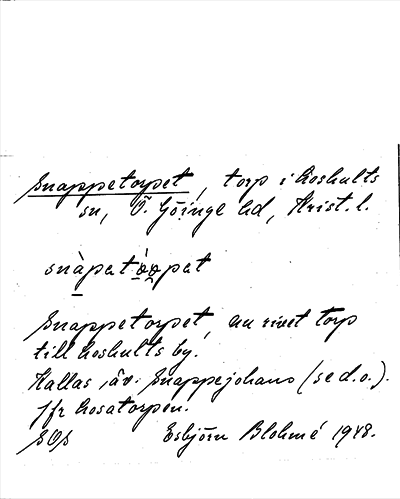 Snappetorpet, torp i Loshults
sn, Ö. Göinge hd, Krist. l.
snàpatò̰o̰pat
Snappetorpet, nu rivet torp
till Loshults by.
Kallas äv. Snappejohans (se d.o.).
Jfr Losatorpen.
SOS Esbjörn Blohmé 1948.